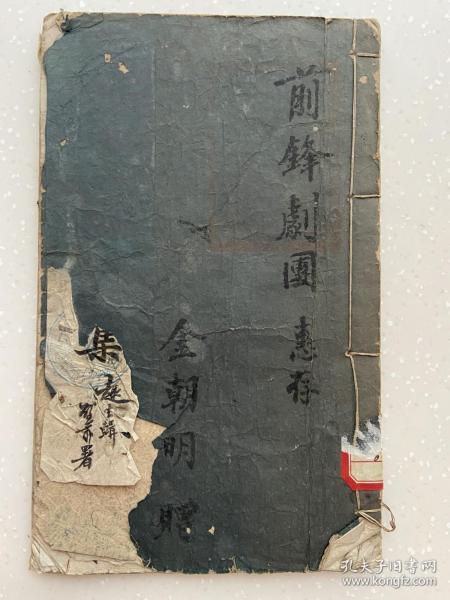 前鋒劇團 惠存
金朝明 贈
集
署
孔夫子旧书网
www.kongfz.com